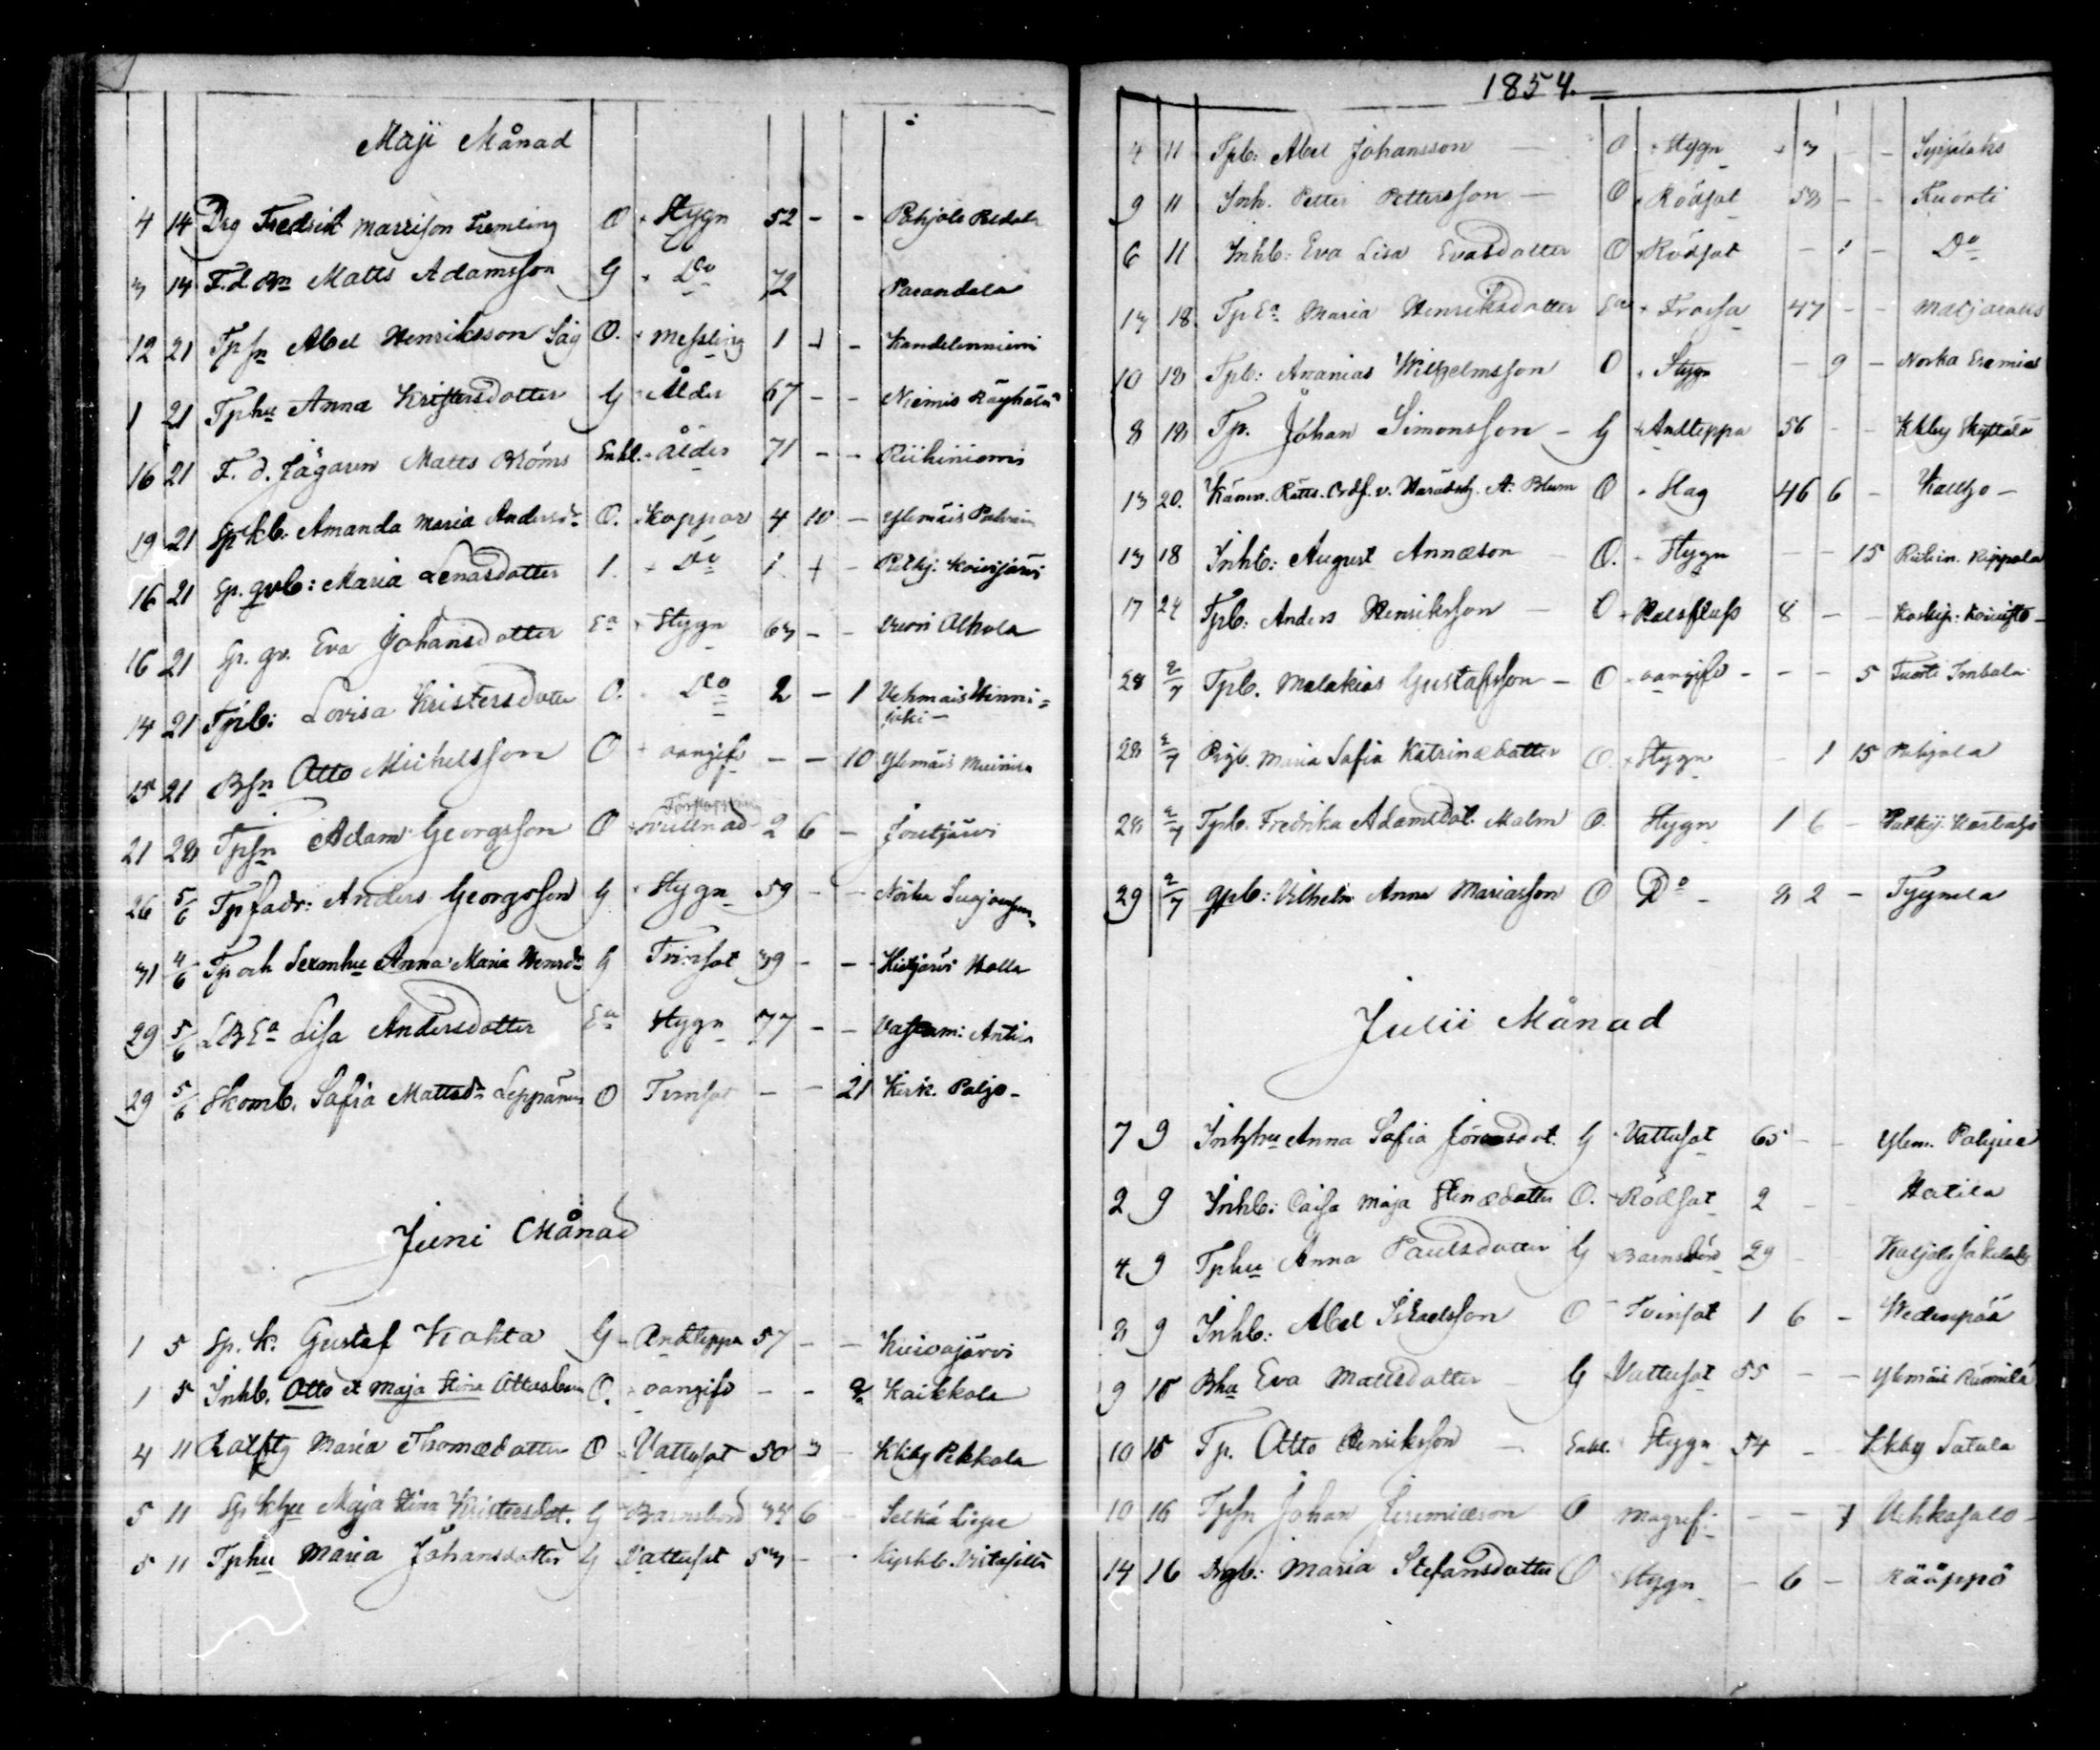 Maji Månad
4 14 Drg Fredrik Marrison Fremling O Stygn 52 - - Pohjola
3 14 F.d. Bn Matts Adamsson G Do 72 Parandala
12 21 Tpsn Abel Henriksson Säg O. Messling 1 - - Kandelinniemi
1 21 Tphu Anna Kristersdotter G Ålder 67 - - Niemis Räyhälä
16 21 F. d. Jägaren Matts Bröms Enkl. Ålder 71 - - Riihiniemi
19 21 Spkb. Amanda Maria Andersdr O. Koppor 4 10 - Ylemäis
16 21 Sp. gvb: Maria Lenasdotter 1. Do 1 - - Pitkj. Koivijärvi
16 21 Sp. gv. Eva Johansdotter Ea Stygn 63 - - Vuori Alhola
14 21 Tpb: Lovisa Kristersdotter O. Do 2 - 1 Vehmais Hinni=
joki -
15 21 Bsn Otto Michelsson O oangifv - - 10 Ylemäis
21 28 Tpsn Adam Georgsson O Svullnad 2 6 - Joutjärvi
26 5/6 Tpfadr: Anders Georgsson G Stygn 59 - - Norka
31 4/6 Tp och Sexmhu Anna Maria Henrdr G Tvinsot 39 - - Kuijärvi Halla
29 5/6 LBEa Lisa Andersdotter Ea Stygn 77 - - Antila
29 5/6 Skomb. Safia Mattsdr Leppänen O Tvinsot - - 21 Kirk. Paljo -
Juni Månad
1 5 Sp. k. Gustaf Kahta G Andteppa 57 - - Kuivajärvi
1 5 Inhb. Otto et Maja Stina Ottosbarn O. oangifv - - 2 Kaikkola
4 11 Rotftg Maria Thomædotter O Vattusot 50 3 Kkby Pekkala
5 11 Sp khu Maja Stina Kristersdot. G Barnsbörd 34 6 - Selkä Lispe
5 11 Tphu Maria Johansdotter G Vattusot 53 - -
1854.
4 11 Tpb: Abel Johansson - O Stygn - 3 - - Syrjälaks
9 11 Inh. Petter Pettersson - O Rödsot 58 - - Kuorti
6 11 Inhb: Eva Lisa Evasdotter O Rödsot - 1 - Do
13 18 TpEa Maria Henriksdotter Ea Frossa 47 - -
10 18 Tpb: Ananias Wilhelmsson O Stygn - 9 - Norka Eremias
8 18 Tp. Johan Simonsson - G Andteppa 56 - - Kkby Skyttälä
13 20. Kämn. Rätts. Ordf. v. Häradsh. A. Blum O Slag 46 6 - Kalljo -
13 18 Inhb: August Annæson O. Stygn - - 15 Riihin. Kippola
17 24 Tpb: Anders Henriksson - O Halsfluss 8 - -
28 2/7 Tpb. Malakias Gustafsson - O oangifv - - - 5 Tuorti Imbala
28 2/7 Prgb. Maria Safia Katrinædotter O. Stygn - 1 15 Pohjola
28 2/7 Tpb. Fredrika Adamsdot. Malm O. Stygn 1 6 -
29 2/7 gpb: Vilhelm Anna Mariasson O Do - 8 2 - Tyynela
Julii Månad
7 9 Inhhu Anna Safia Göransdot. G Vattusot 65 - - Ylem.
2 9 Inhb: Caisa Maja Stinædotter O. Rödsot 2 - - Hatila
4 9 Tphu Anna Paulsdotter G Barnsbörd 29
8 9 Inhb: Abel Israelsson O Tvinsot 1 6 - Vedenpää
9 15 Bhu Eva Mattsdotter - G Vattusot 55 - - Ylemäis
10 15 Tp. Otto Henriksson - Enkl. Stygn 54 - - Kkby Satula
10 16 Tpsn Johan Jeremiæson O Magref - - 7 Uchkasalo -
14 16 Drgb: Maria Stefansdotter O Stygn - 6 - Rääppö